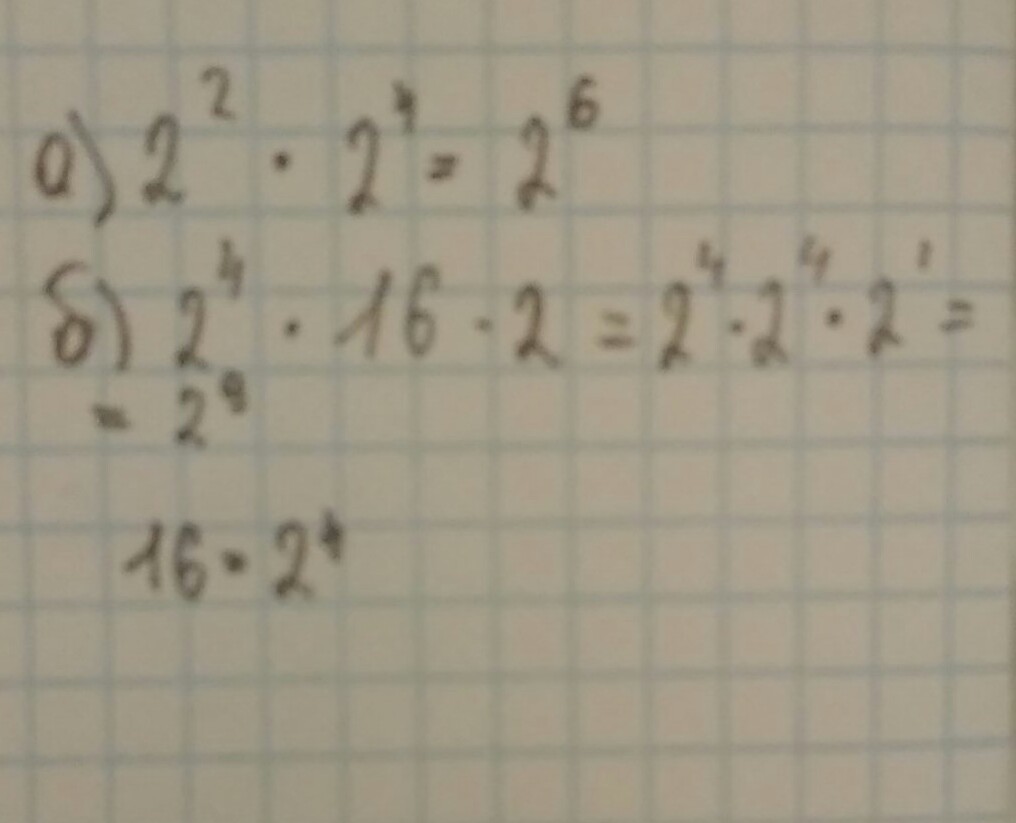 а) 2² · 2⁴ = 2⁶
б) 2⁴ · 16 · 2 = 2⁴ · 2⁴ · 2¹ =
= 2⁹
16 = 2⁴